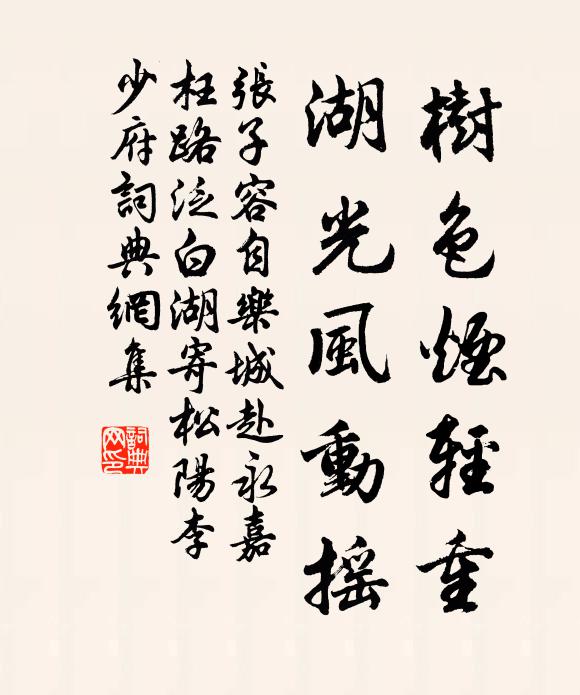 樹色煙輕重
湖光風動搖
張子容自樂城赴永嘉
枉路泛白湖寄松陽李
少府詞典網集
詞典
网印